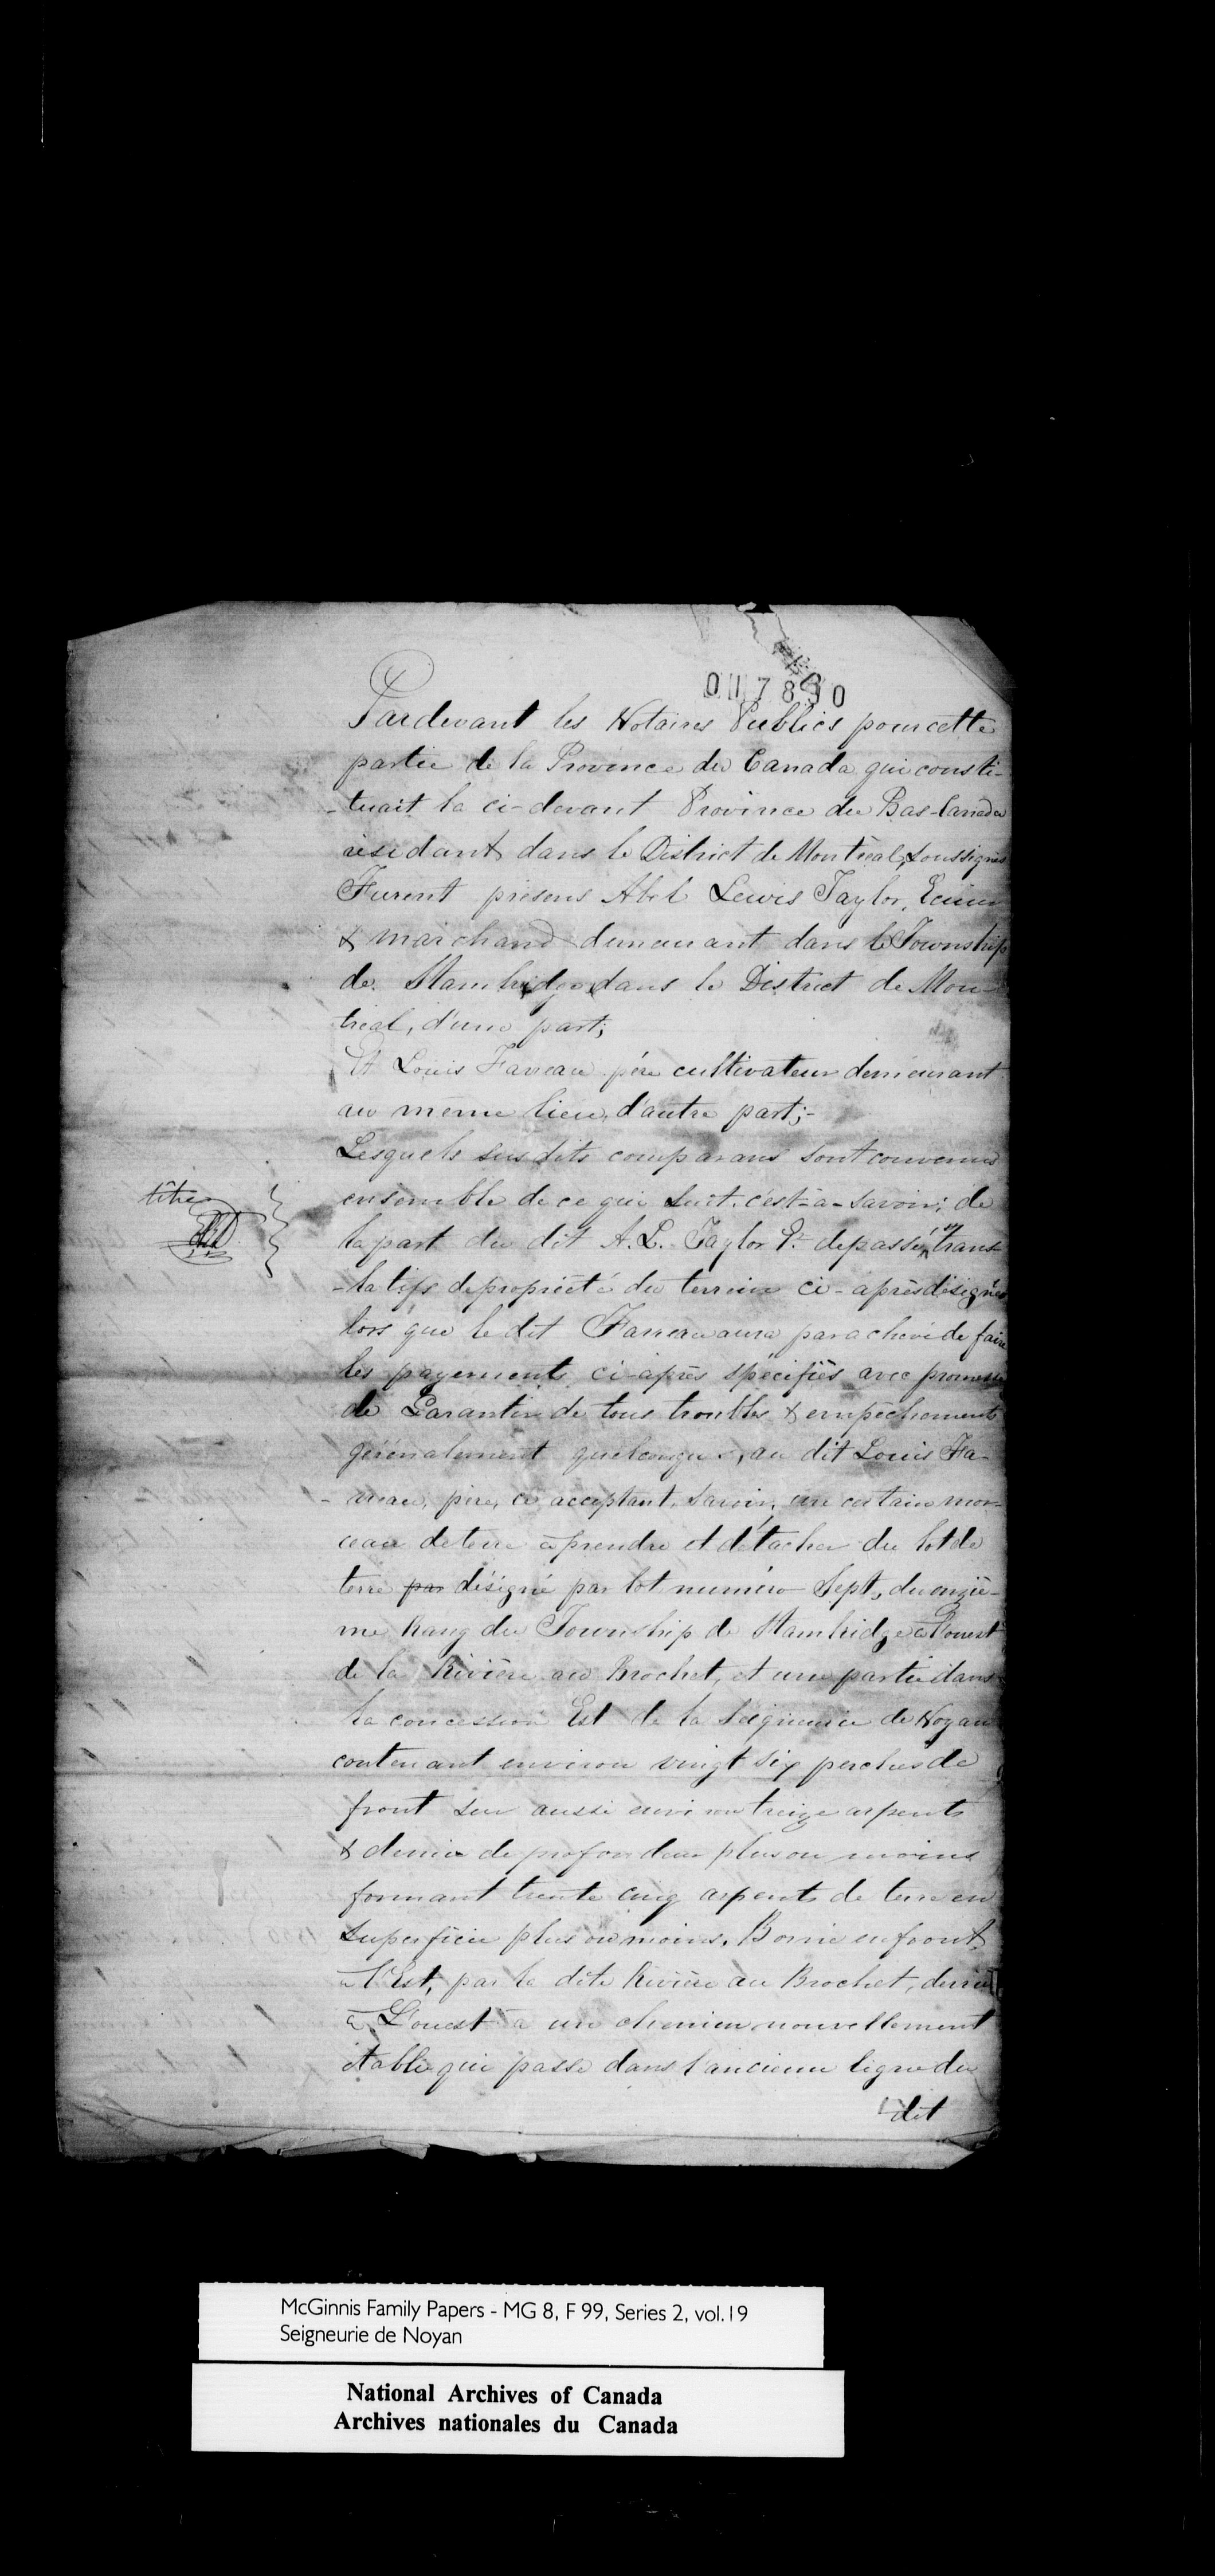 Pardevant les Notaires Publics pour cette
partie de la Province du Canada qui consti-
-tuait la ci-devant Province du Bas-Canada
résidant dans le District de Montréal, soussignés
Furent présens Abel Lewis Taylor, Ecuier
& marchand demeurant dans le Township
de Stambridge dans le District de Mon-
treal, d'une part;
Et Louis Faneau père cultivateur demeurant
au même lieu, d'autre part;-
Lesquels susdits comparans sont convenus
ensemble de ce qui suit. c'est-à-savoir: de
titre
la part du dit A. L. Taylor de passer trans-
-latifs de propriété du terrein ci-après désigné
lors que le dit Faneau aura parachevé de faire
les payements ci-après spécifiés avec promesse
de Garantir de tous troubles & empêchements
généralement quelconques, au dit Louis Fa-
-neau, père, ce acceptant, savoir, un certain mor-
ceau de terre à prendre et détacher du lot de
terre par désigné par lot numéro Sept, du onziè-
me Rang du Township de Stambridge à l'ouest
de la Rivière au Brochet, et une partie dans
la concession Est de la Seigneurie de Noyan
contenant environ vingt six perches de
front sur aussi environ treize arpents
& demie de profondeur plus ou moins
formant trente cinq arpents de terre en
superficie plus ou moins. Borné en front
à l'Est, par la dite Rivière au Brochet, derrière
à L'ouest à un chemin nouvellement
établi qui passe dans l'ancienne ligne du
dit
McGinnis Family Papers - MG 8, F 99, Series 2, vol.19
Seigneurie de Noyan
National Archives of Canada
Archives nationales du Canada